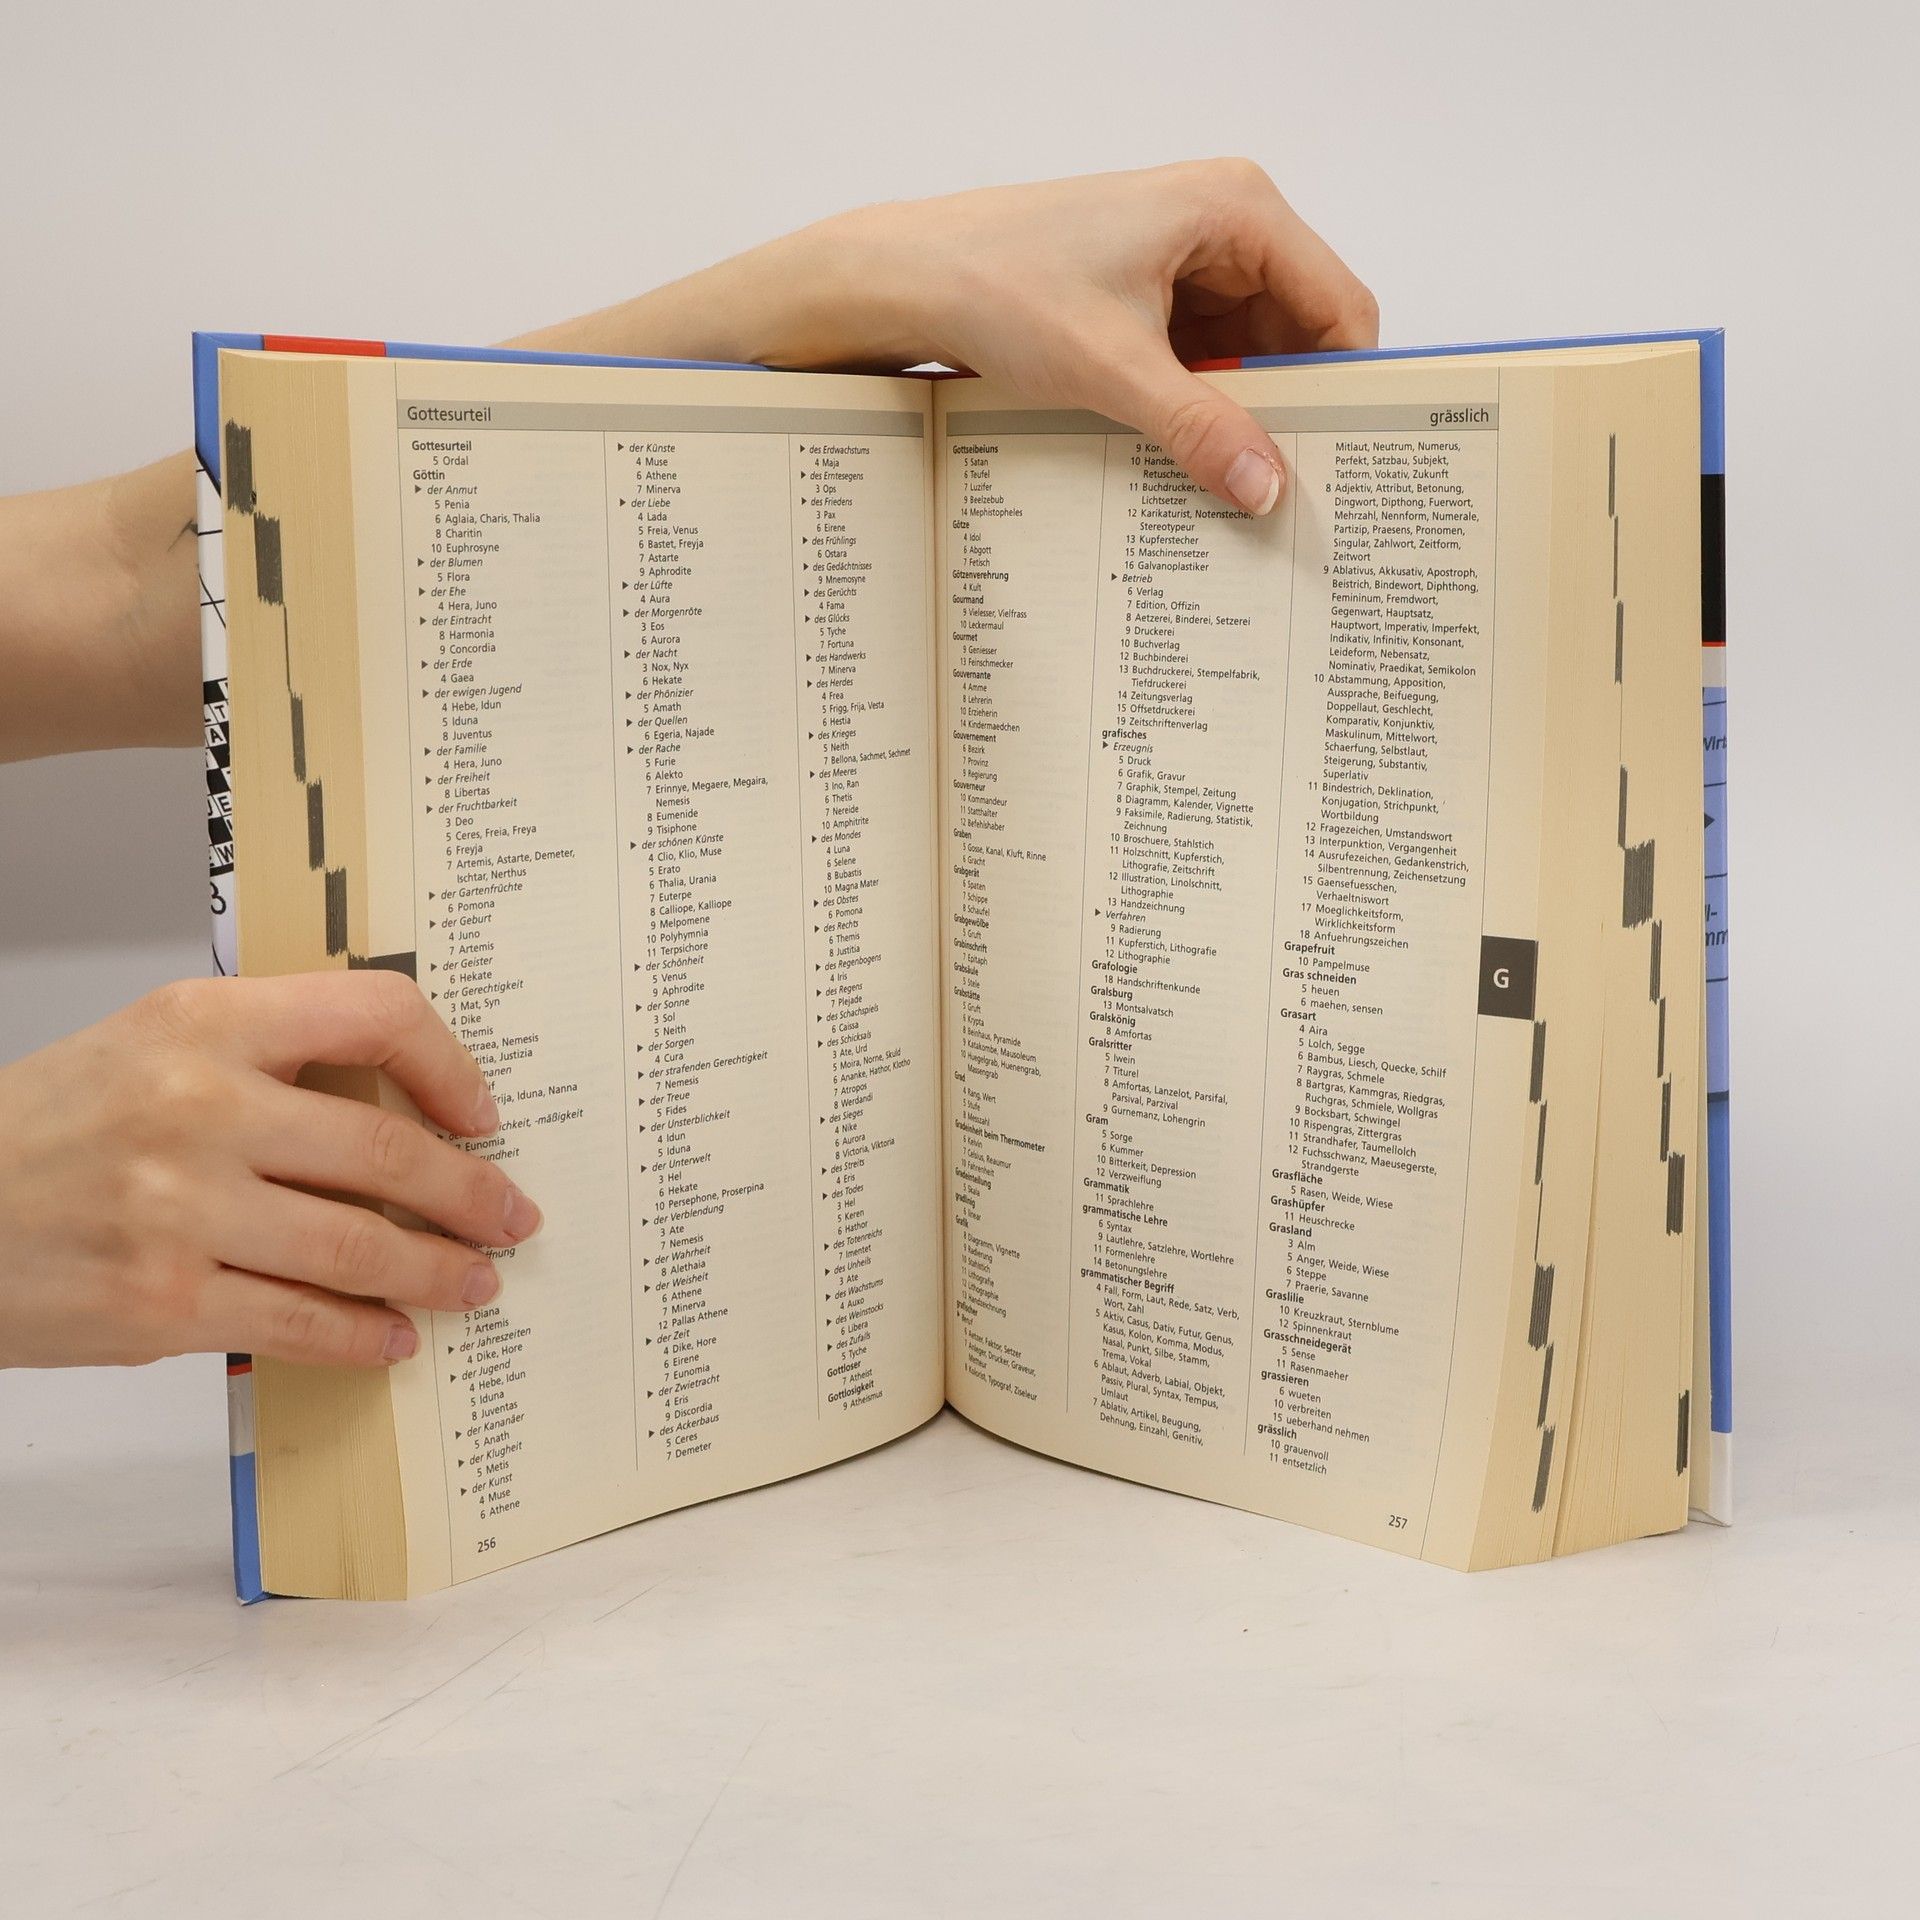 Gottesurteil
Gottesurteil
5 Ordal
Göttin
▶ der Anmut
5 Penia
6 Aglaia, Charis, Thalia
8 Charitin
10 Euphrosyne
▶ der Blumen
5 Flora
▶ der Ehe
4 Hera, Juno
▶ der Eintracht
8 Harmonia
9 Concordia
▶ der Erde
4 Gaea
▶ der ewigen Jugend
4 Hebe, Idun
5 Iduna
8 Juventus
▶ der Familie
4 Hera, Juno
▶ der Freiheit
8 Libertas
▶ der Fruchtbarkeit
3 Deo
5 Ceres, Freia, Freya
6 Freyja
7 Artemis, Astarte, Demeter,
Ischtar, Nerthus
▶ der Gartenfrüchte
6 Pomona
▶ der Geburt
4 Juno
7 Artemis
▶ der Geister
6 Hekate
▶ der Gerechtigkeit
3 Mat, Syn
4 Dike
Themis
Astraea, Nemesis
Justizia
Frija, Iduna, Nanna
-mäßigkeit
Eunomia
5 Diana
7 Artemis
▶ der Jahreszeiten
4 Dike, Hore
▶ der Jugend
4 Hebe, Idun
5 Iduna
8 Juventas
▶ der Kananäer
5 Anath
▶ der Klugheit
5 Metis
▶ der Kunst
4 Muse
6 Athene
▶ der Künste
4 Muse
6 Athene
7 Minerva
▶ der Liebe
4 Lada
5 Freia, Venus
6 Bastet, Freyja
7 Astarte
9 Aphrodite
▶ der Lüfte
4 Aura
▶ der Morgenröte
3 Eos
6 Aurora
▶ der Nacht
3 Nox, Nyx
6 Hekate
▶ der Phönizier
5 Amath
▶ der Quellen
6 Egeria, Najade
▶ der Rache
5 Furie
6 Alekto
7 Erinnye, Megaere, Megaira,
Nemesis
8 Eumenide
9 Tisiphone
▶ der schönen Künste
4 Clio, Klio, Muse
5 Erato
6 Thalia, Urania
7 Euterpe
8 Calliope, Kalliope
9 Melpomene
10 Polyhymnia
11 Terpsichore
▶ der Schönheit
5 Venus
9 Aphrodite
▶ der Sonne
3 Sol
5 Neith
▶ der Sorgen
4 Cura
▶ der strafenden Gerechtigkeit
7 Nemesis
▶ der Treue
5 Fides
▶ der Unsterblichkeit
4 Idun
5 Iduna
▶ der Unterwelt
3 Hel
6 Hekate
10 Persephone, Proserpina
▶ der Verblendung
3 Ate
7 Nemesis
▶ der Wahrheit
8 Alethaia
▶ der Weisheit
6 Athene
7 Minerva
12 Pallas Athene
▶ der Zeit
4 Dike, Hore
6 Eirene
7 Eunomia
▶ der Zwietracht
4 Eris
9 Discordia
▶ des Ackerbaus
5 Ceres
7 Demeter
▶ des Erdwachstums
4 Maja
▶ des Erntesegens
3 Ops
▶ des Friedens
3 Pax
6 Eirene
▶ des Frühlings
6 Ostara
▶ des Gedächtnisses
9 Mnemosyne
▶ des Gerüchts
4 Fama
▶ des Glücks
5 Tyche
7 Fortuna
▶ des Handwerks
7 Minerva
▶ des Herdes
4 Frea
5 Frigg, Frija, Vesta
6 Hestia
▶ des Krieges
5 Neith
7 Bellona, Sachmet, Sechmet
▶ des Meeres
3 Ino, Ran
6 Thetis
7 Nereide
10 Amphitrite
▶ des Mondes
4 Luna
6 Selene
8 Bubastis
10 Magna Mater
▶ des Obstes
6 Pomona
▶ des Rechts
6 Themis
8 Justitia
▶ des Regenbogens
4 Iris
▶ des Regens
7 Plejade
▶ des Schachspiels
6 Caissa
▶ des Schicksals
3 Ate, Urd
5 Moira, Norne, Skuld
6 Ananke, Hathor, Klotho
7 Atropos
8 Werdandi
▶ des Sieges
4 Nike
6 Aurora
8 Victoria, Viktoria
▶ des Streits
4 Eris
▶ des Todes
3 Hel
5 Keren
6 Hathor
▶ des Totenreichs
7 Imentet
▶ des Unheils
3 Ate
▶ des Wachstums
4 Auxo
▶ des Weinstocks
6 Libera
▶ des Zufalls
5 Tyche
Gottloser
7 Atheist
Gottlosigkeit
9 Atheismus
256
grässlich
Gottseibeiuns
5 Satan
6 Teufel
7 Luzifer
9 Beelzebub
14 Mephistopheles
Götze
4 Idol
6 Abgott
7 Fetisch
Götzenverehrung
4 Kult
Gourmand
9 Vielesser, Vielfrass
10 Leckermaul
Gourmet
9 Geniesser
13 Feinschmecker
Gouvernante
4 Amme
8 Lehrerin
10 Erzieherin
14 Kindermaedchen
Gouvernement
6 Bezirk
7 Provinz
9 Regierung
Gouverneur
10 Kommandeur
11 Statthalter
12 Befehlshaber
Graben
5 Gosse, Kanal, Kluft, Rinne
6 Gracht
Grabgerät
6 Spaten
7 Schippe
8 Schaufel
Grabgewölbe
5 Gruft
Grabinschrift
7 Epitaph
Grabsäule
5 Stele
Grabstätte
5 Gruft
6 Krypta
8 Beinhaus, Pyramide
9 Katakombe, Mausoleum
10 Huegelgrab, Huenengrab,
Massengrab
Grad
4 Rang, Wert
5 Stufe
8 Messzahl
Gradeinheit beim Thermometer
6 Kelvin
7 Celsius, Reaumur
10 Fahrenheit
Gradeinteilung
5 Skala
gradlinig
6 linear
Grafik
8 Diagramm, Vignette
9 Radierung
10 Stahlstich
11 Lithografie
12 Lithographie
13 Handzeichnung
grafischer
▶ Beruf
6 Aetzer, Faktor, Setzer
7 Anleger, Drucker, Graveur,
Metteur
8 Kolorist, Typograf, Ziseleur
9
10
11 Buchdrucker,
Lichtsetzer
12 Karikaturist, Notenstecher,
Stereotypeur
13 Kupferstecher
15 Maschinensetzer
16 Galvanoplastiker
▶ Betrieb
6 Verlag
7 Edition, Offizin
8 Aetzerei, Binderei, Setzerei
9 Druckerei
10 Buchverlag
12 Buchbinderei
13 Buchdruckerei, Stempelfabrik,
Tiefdruckerei
14 Zeitungsverlag
15 Offsetdruckerei
19 Zeitschriftenverlag
grafisches
▶ Erzeugnis
5 Druck
6 Grafik, Gravur
7 Graphik, Stempel, Zeitung
8 Diagramm, Kalender, Vignette
9 Faksimile, Radierung, Statistik,
Zeichnung
10 Broschuere, Stahlstich
11 Holzschnitt, Kupferstich,
Lithografie, Zeitschrift
12 Illustration, Linolschnitt,
Lithographie
13 Handzeichnung
▶ Verfahren
9 Radierung
11 Kupferstich, Lithografie
12 Lithographie
Grafologie
18 Handschriftenkunde
Gralsburg
13 Montsalvatsch
Gralskönig
8 Amfortas
Gralsritter
5 Iwein
7 Titurel
8 Amfortas, Lanzelot, Parsifal,
Parsival, Parzival
9 Gurnemanz, Lohengrin
Gram
5 Sorge
6 Kummer
10 Bitterkeit, Depression
12 Verzweiflung
Grammatik
11 Sprachlehre
grammatische Lehre
6 Syntax
9 Lautlehre, Satzlehre, Wortlehre
11 Formenlehre
14 Betonungslehre
grammatischer Begriff
4 Fall, Form, Laut, Rede, Satz, Verb,
Wort, Zahl
5 Aktiv, Casus, Dativ, Futur, Genus,
Kasus, Kolon, Komma, Modus,
Nasal, Punkt, Silbe, Stamm,
Trema, Vokal
6 Ablaut, Adverb, Labial, Objekt,
Passiv, Plural, Syntax, Tempus,
Umlaut
7 Ablativ, Artikel, Beugung,
Dehnung, Einzahl, Genitiv,
Mitlaut, Neutrum, Numerus,
Perfekt, Satzbau, Subjekt,
Tatform, Vokativ, Zukunft
8 Adjektiv, Attribut, Betonung,
Dingwort, Dipthong, Fuerwort,
Mehrzahl, Nennform, Numerale,
Partizip, Praesens, Pronomen,
Singular, Zahlwort, Zeitform,
Zeitwort
9 Ablativus, Akkusativ, Apostroph,
Beistrich, Bindewort, Diphthong,
Femininum, Fremdwort,
Gegenwart, Hauptsatz,
Hauptwort, Imperativ, Imperfekt,
Indikativ, Infinitiv, Konsonant,
Leideform, Nebensatz,
Nominativ, Praedikat, Semikolon
10 Abstammung, Apposition,
Aussprache, Beifuegung,
Doppellaut, Geschlecht,
Komparativ, Konjunktiv,
Maskulinum, Mittelwort,
Schaerfung, Selbstlaut,
Steigerung, Substantiv,
Superlativ
11 Bindestrich, Deklination,
Konjugation, Strichpunkt,
Wortbildung
12 Fragezeichen, Umstandswort
13 Interpunktion, Vergangenheit
14 Ausrufezeichen, Gedankenstrich,
Silbentrennung, Zeichensetzung
15 Gaensefuesschen,
Verhaeltniswort
17 Moeglichkeitsform,
Wirklichkeitsform
18 Anfuehrungszeichen
Grapefruit
10 Pampelmuse
Gras schneiden
5 heuen
6 maehen, sensen
Grasart
4 Aira
5 Lolch, Segge
6 Bambus, Liesch, Quecke, Schilf
7 Raygras, Schmele
8 Bartgras, Kammgras, Riedgras,
Ruchgras, Schmiele, Wollgras
9 Bocksbart, Schwingel
10 Rispengras, Zittergras
11 Strandhafer, Taumellolch
12 Fuchsschwanz, Maeusegerste,
Strandgerste
Grasfläche
5 Rasen, Weide, Wiese
Grashüpfer
11 Heuschrecke
Grasland
3 Alm
5 Anger, Weide, Wiese
6 Steppe
7 Praerie, Savanne
Graslilie
10 Kreuzkraut, Sternblume
12 Spinnenkraut
Grasschneidegerät
5 Sense
11 Rasenmaeher
grassieren
6 wueten
10 verbreiten
15 ueberhand nehmen
grässlich
10 grauenvoll
11 entsetzlich
G
257